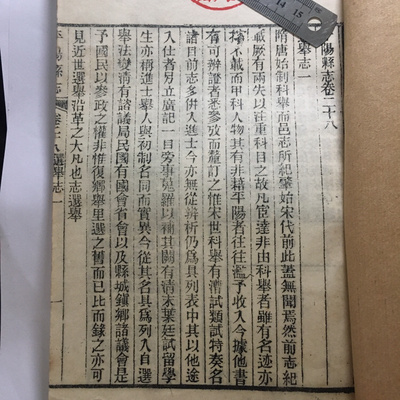 陽縣志卷二十八
舉志一
隋唐始制科舉而邑志所紀肇始宋代前此蓋無聞焉然前志紀
載厥有兩失以注重科目之故凡宦達非由科舉者雖有名迹亦
不載而甲科人物其有非籍平陽者往往濫予收入今據他書
有可辯證者悉參攷而釐訂之惟宋世科舉有漕試類試特奏名
諸進士今亦無從辨析仍爲具列表中其以他途
入仕者另立廣記一目旁事蒐羅以補其闕有清末葉廷試留學
生亦稱進士舉人與初制名同而實異今從其名具爲列入自選
舉法變清有諮議局民國有國會省會以及縣城鎭鄉諸議會是
予國民以參政之權非惟復鄉舉里選之舊而已比而錄之亦可
見近世選舉沿革之大凡也志選舉
平陽縣志
卷二十八選舉志一
一
14 15